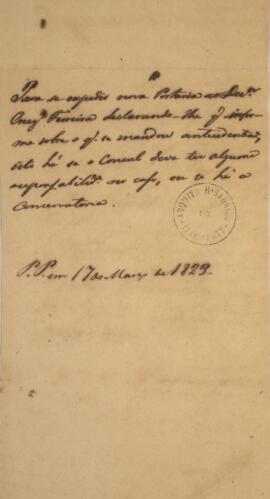 Para se expedir nova Portaria ao Dez.or
Cons.o Ferreira declarando-lhe q' infor-
me sobre o q' se mandou antecedente,
isto hé se o Consul deve ter alguma
no caso, ou se há a
Conservatoria.
ARQUIVO HISTORICO
DO
ITAMARATY
P.P. em 17 de Março de 1829.